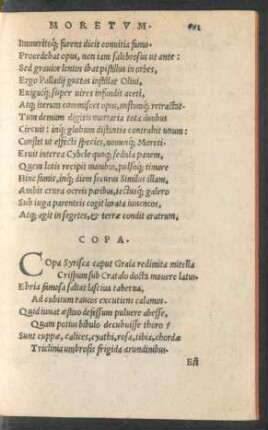 MORETVM.
Immeritoq́; furens dicit conuitia fumo.
Procedebat opus, non iam salebrosus ut ante:
Sed grauior lentos ibat pistillus in orbes,
Ergo Palladij guttas instillat Oliui,
Exiguiq́; super uires infundit aceti,
Atq; iterum commiscet opus, mistumq́; retractat.
Tum demum digitis mortaria tota duobus
Circuit: inq́; globum distantia contrahit unum:
Constet ut effecti species, nomenq́; Moreti.
Eruit interea Cybele quoq; sedula panem,
Quem lotis recipit manibus, pulsoq́; timore
Hinc famis, inq́; diem securus Similus illam,
Ambit crura ocreis paribus, tectusq́; galero
Sub iuga parenteis cogit lorata iuuencos,
Atq; agit in segetes, & terræ condit aratrum.
COPA.
COpa Syrisca caput Graia redimita mitella
Crispum sub Crotalo docta mouere latus.
Ebria fumosa saltat lasciua taberna,
Ad cubitum raucos excutiens calamos.
Quid iuuat æstiuo defessum puluere abesse,
Quam potius bibulo decubuisse thoro?
Sunt cuppæ, calices, cyathi, rosa, tibia, chordæ
Triclinia umbrosis frigida arundinibus.
Est